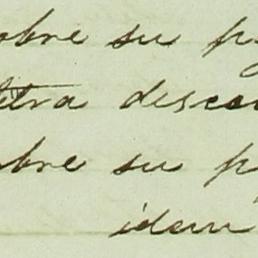 obre su p
letra desco
obre su p
idem